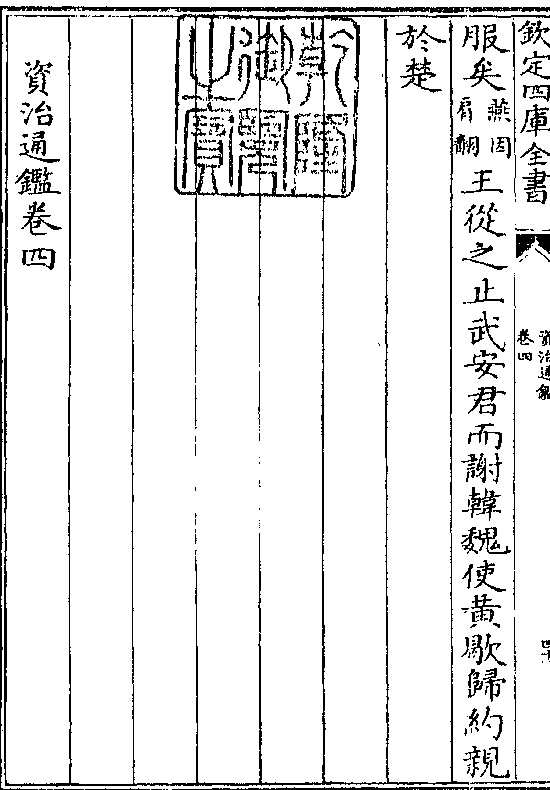 欽定四庫全書
資治通鑑
卷四
服矣燕因肩翻王從之止武安君而謝韓魏使黄歇歸約親
於楚
乾隆御覽之寶
資治通鑑卷四